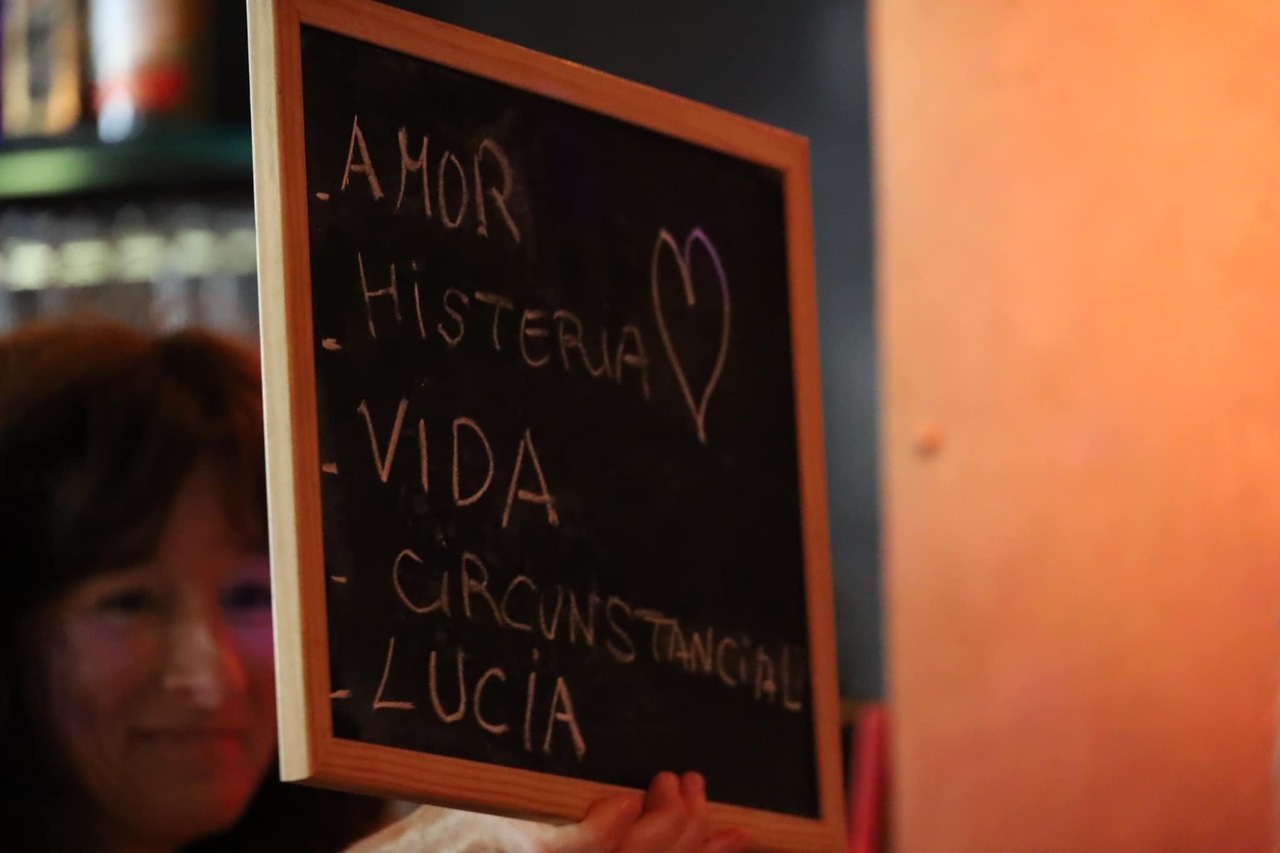 - AMOR
- HiSTERIA
- VIDA
- CiRCUNSTANCiAL
- LUCíA